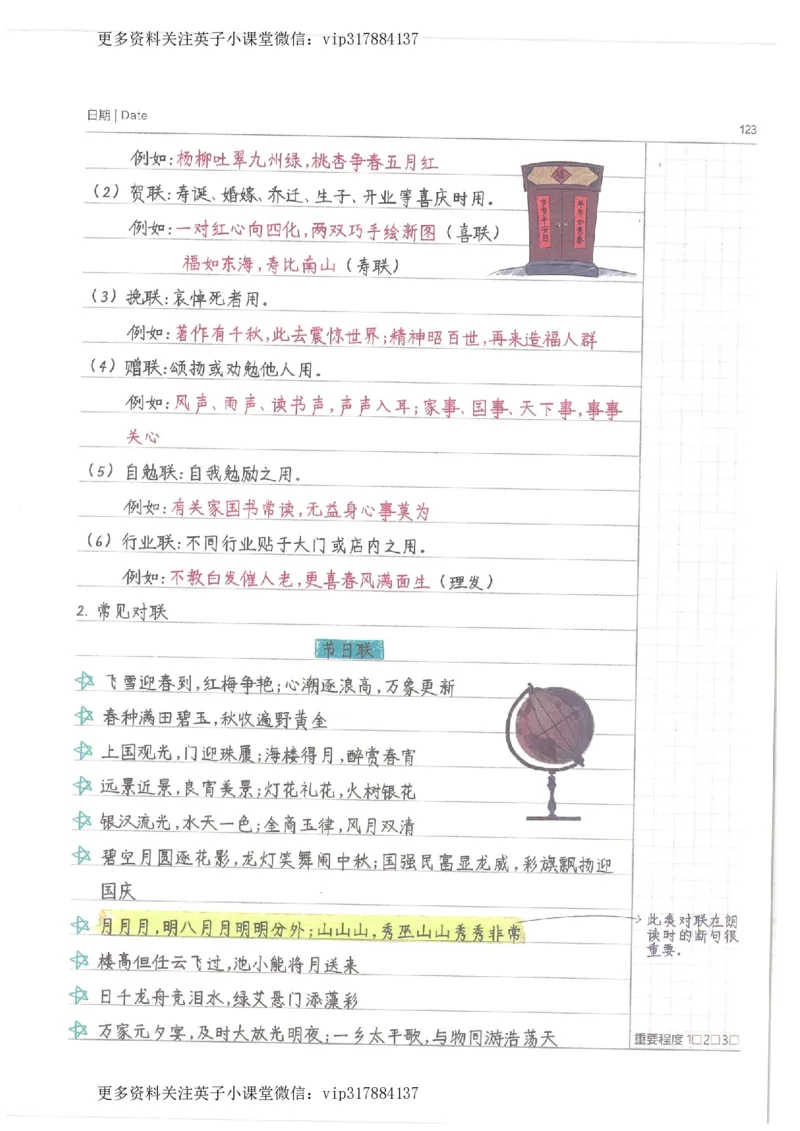 更多资料关注英子小课堂微信：vip317884137
日期 | Date
123
例如:杨柳吐翠九州绿,桃杏争春五月红
(2) 贺联:寿诞、婚嫁、乔迁、生子、开业等喜庆时用。
例如:一对红心向四化,两双巧手绘新图(喜联)
福如东海,寿比南山(寿联)
(3) 挽联:哀悼死者用。
例如:著作有千秋,此去震惊世界;精神昭百世,再来造福人群
(4) 赠联:颂扬或劝勉他人用。
例如:风声、雨声、读书声,声声入耳;家事、国事、天下事,事事
关心
(5) 自勉联:自我勉励之用。
例如:有关家国书常读,无益身心事莫为
(6) 行业联:不同行业贴于大门或店内之用。
例如:不教白发催人老,更喜春风满面生(理发)
2. 常见对联
节日联
飞雪迎春到,红梅争艳;心潮逐浪高,万象更新
春种满田碧玉,秋收遍野黄金
上国观光,门迎珠履;海楼得月,醉赏春宵
远景近景,良宵美景;灯花礼花,火树银花
银汉流光,水天一色;金商玉律,风月双清
碧空月圆逐花影,龙灯笑舞闹中秋;国强民富显龙威,彩旗飘扬迎
国庆
月月月,明八月月明明分外;山山山,秀巫山山秀秀非常
此类对联在朗
读时的断句很
重要。
楼高但任云飞过,池小能将月送来
日千龙舟竞泪水,绿艾悬门添藻彩
万家元夕宴,及时大放光明夜;一乡太平歌,与物同游浩荡天
重要程度 1□2□3□
更多资料关注英子小课堂微信：vip317884137